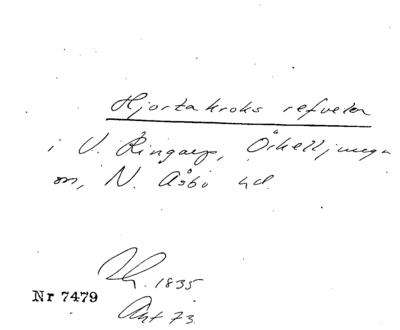 Hjortakroks refvelen
i V. Ringarp, Örkelljunga
sn, N. Åsbo hd.
1835
Nr 7479
Akt 73.